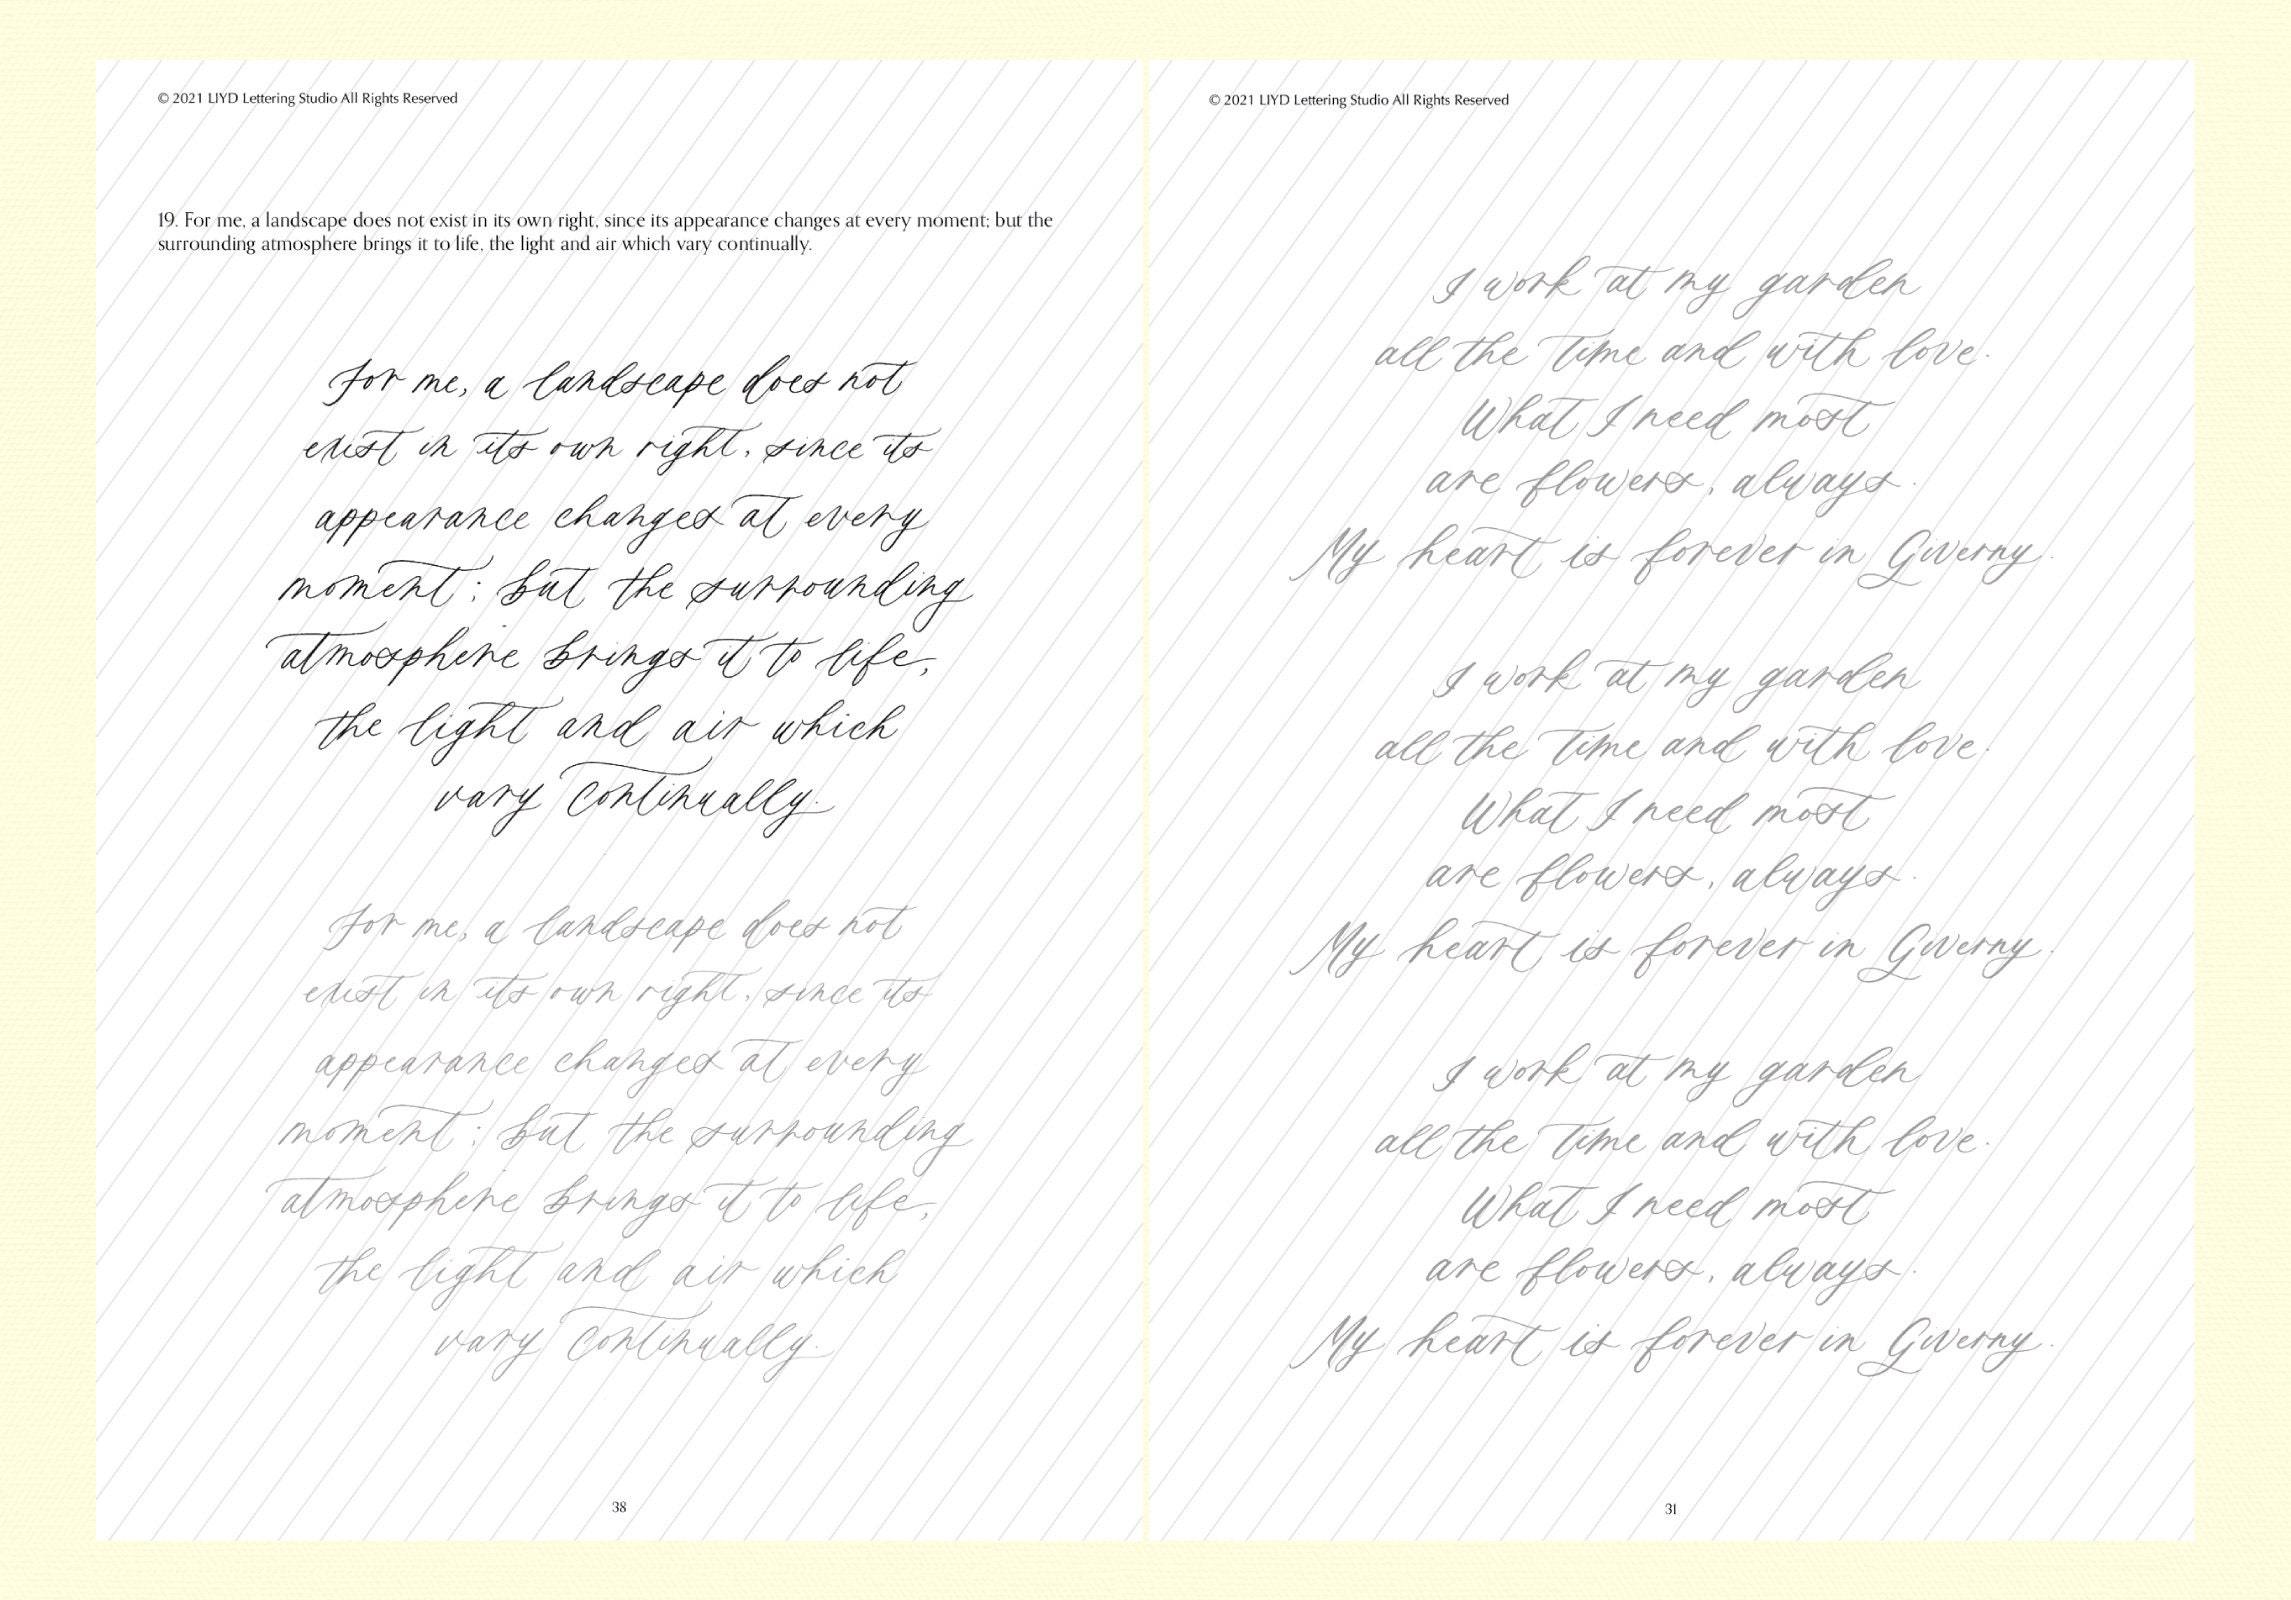 © 2021 LIYD Lettering Studio All Rights Reserved
19. For me, a landscape does not exist in its own right, since its appearance changes at every moment; but the
surrounding atmosphere brings it to life, the light and air which vary continually.
For me, a landscape does not
exist in its own right, since its
appearance changes at every
moment; but the surrounding
atmosphere brings it to life,
the light and air which
vary continually.
For me, a landscape does not
exist in its own right, since its
appearance changes at every
moment; but the surrounding
atmosphere brings it to life,
the light and air which
vary continually.
38
© 2021 LIYD Lettering Studio All Rights Reserved
I work at my garden
all the time and with love.
What I need most
are flowers, always.
My heart is forever in Giverny.
I work at my garden
all the time and with love.
What I need most
are flowers, always.
My heart is forever in Giverny.
I work at my garden
all the time and with love.
What I need most
are flowers, always.
My heart is forever in Giverny.
31